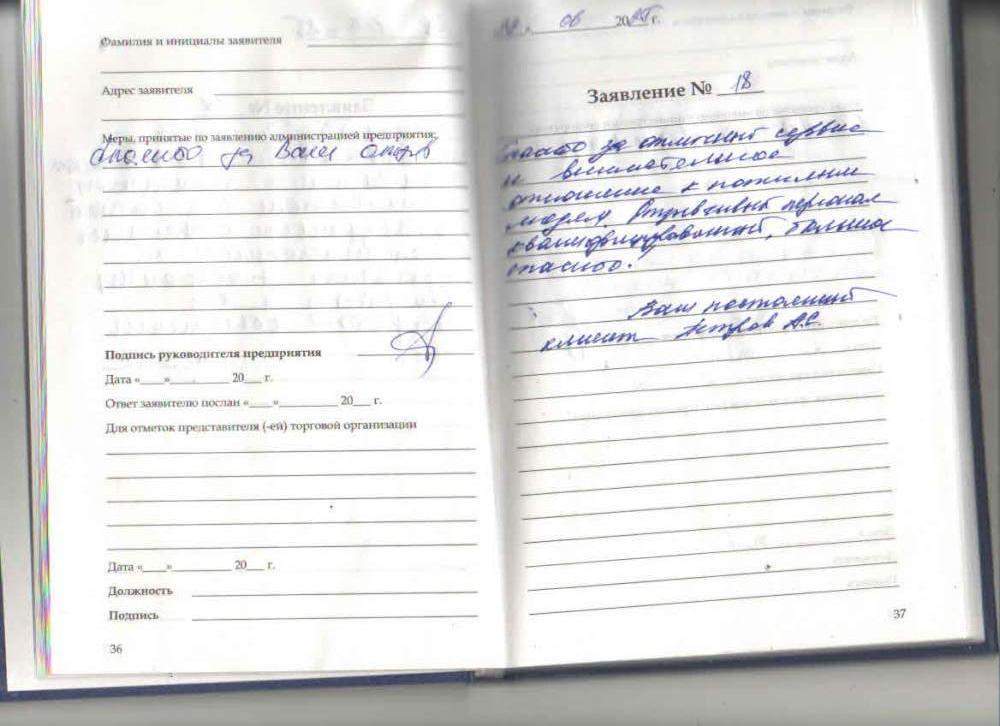 Фамилия и инициалы заявителя
Адрес заявителя
Меры, принятые по заявлению администрацией предприятия:
спасибо за Ваш отзыв
Подпись руководителя предприятия
Дата «___»_________ 20___ г.
Ответ заявителю послан «___»_________ 20___ г.
Для отметок представителя (-ей) торговой организации
Дата «___»_________ 20___ г.
Должность
Подпись
36
06 20 г.
Заявление № 18
Спасибо за отличный сервис
и внимательное
отношение к пожилым
людям. Отзывчивый персонал
квалифицированный, большое
спасибо!
Ваш постоянный
клиент Петров А.С.
37